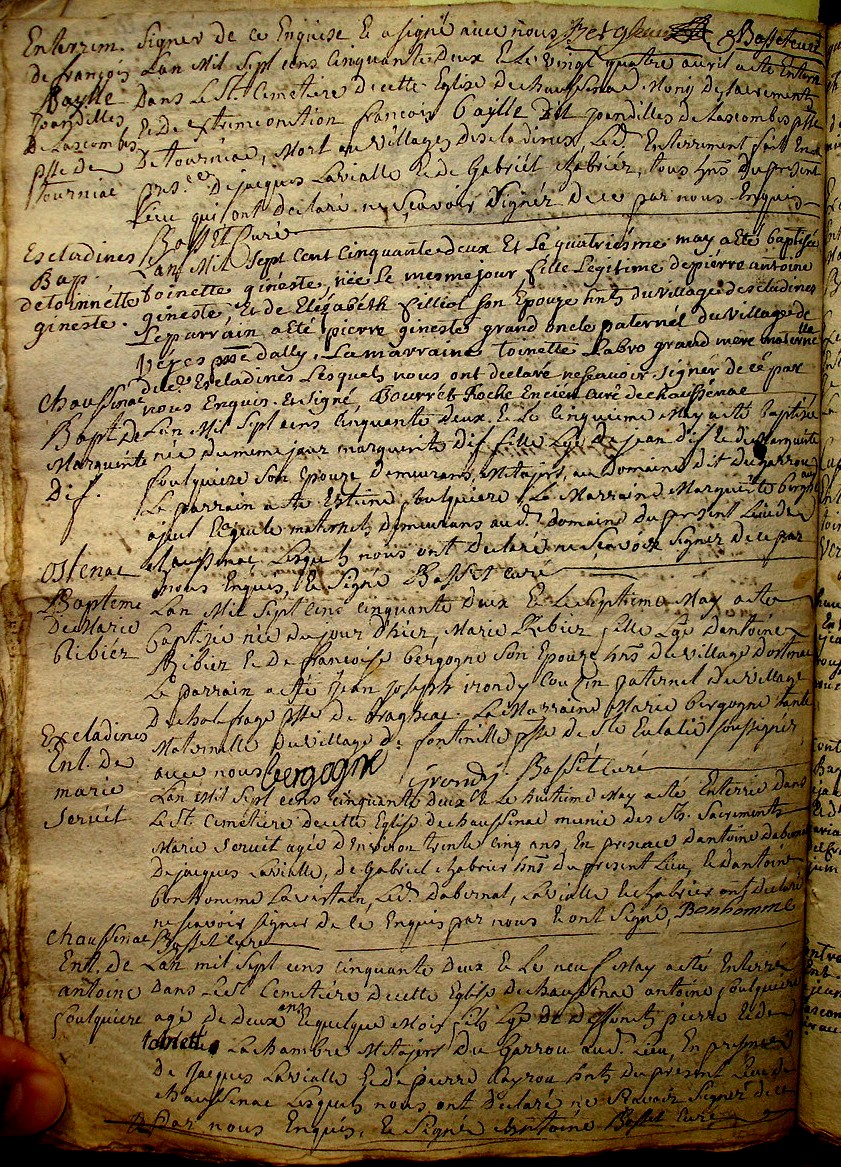 Signer de ce Enquise Et a signé avec nous Bassetcuré
Enterrem.
de françois
Baylle
joandilles
De Lascombes
psse de
tourniac
Lan Mil Sept cens Cinquante Deux Et Le vingt quatre avril a eté Enterré
Dans Le St. Cemetière de cette Eglise de chaussenac Muny des sacrements
Et de extremeonction francois Baylle Dit joandilles de Lascombes psse
De Tourniac, Mort au village descladines, Led. Enterrement fait En
pnsce De jacques Lavialle Et de Gabriél chabrier, tous hnts du present
Lieu qui ont declaré ne scavoir signér de ce par nous Enquis
Basset Curé
Escladines
Bap.
de toinnétte
gineste.
Lan Mil Sept Cent Cinquante deux Et Lé quatriésme may a eté baptisée
toinette ginéste, née Le mesme jour fille Légitime de piérre antoine
ginéste, Et de Elizabéth filliol son Epouze hnts du village descladines
Le parrain a eté pierre ginéste grand oncle paternél du village de
véyes psse dally, La marraine toinétte Labro grand mere maternélle
dud. Escladines Lesquels nous ont declaré ne scavoir signér de cé par
nous Enquis. Et signé, Bourrét Roche Encién curé de chaussénac
chaussenac
Bapt de
Marguerite
Dif.
Lan Mil Sept cens Cinquante Deux Et Le Cinquieme May a eté Baptizée
née du meme jour marguerite Dif fille Lge de jean dif Et de Marguerite
foulquiere son Epouze Demeurans Metayers, au Domaine dit du garrou
Le parrain a eté Estiene foulquiere, La Marraine Marguerite
ajeul Et maternels Demeurans aud. domaine du present Lieu de
chaussenac Lesquels nous ont Declaré ne scavoir signer de ce par
nous Enquis, Et Signé Basset curé
Ostenac
Bapteme
De Marie
Ribiér
Lan Mil Sept cens cinquante deux Et Le septieme May a eté
baptizée née du jour d'hier, Marie Ribier, fille Lge dantoine
Ribier Et De francoise bergogne son Epouze hnts du village dostenac
Le parrain a eté jean joseph irondy Cousin paternel du village
De psse de Braghac. La Marraine Marie bergogne tante
Maternelle du village de fontenille psse de Ste Eulalie soussignés
avec nous bergogne jrondy. Bassetcuré
Excladines
Ent. de
marie
serveit
Lan Mil Sept cens cinquante deux Et Le huitieme May a eté Enterrée dans
Le St. Cemetiére de cette Eglise de chaussenac munie des Sts. Sacrements
Marie serveit agée d'Environ trente cinq ans, En presence dantoine dabernat
De jacques Lavialle, de Gabriel chabrier hnts du present Lieu, Et dantoine
bonhomme Led. dabernat, Lavialle Et chabrier ont declaré
ne scavoir signer de ce Enquis par nous Et ont signé, Bonhomme
Basset Curé
chaussenac
Ent. de
antoine
foulquiere
Lan mil Sept cens cinquante deux Et Le neuf May a eté Enterré
Dans Le St. Cemetiére de cette Eglise de chaussenac antoine foulquiere
agé de deux ans Et quelque mois fils Lge de deffunts pierre Et de
toinette Lachambre Metayers du Garrou aud. Lieu, En presence
De jacques Lavialle Et de pierre Leyrou hnts du present Lieu de
chaussenac Lesquels nous ont Declaré ne scavoir signer de ce
par nous Enquis, Et Signé Basset Curé